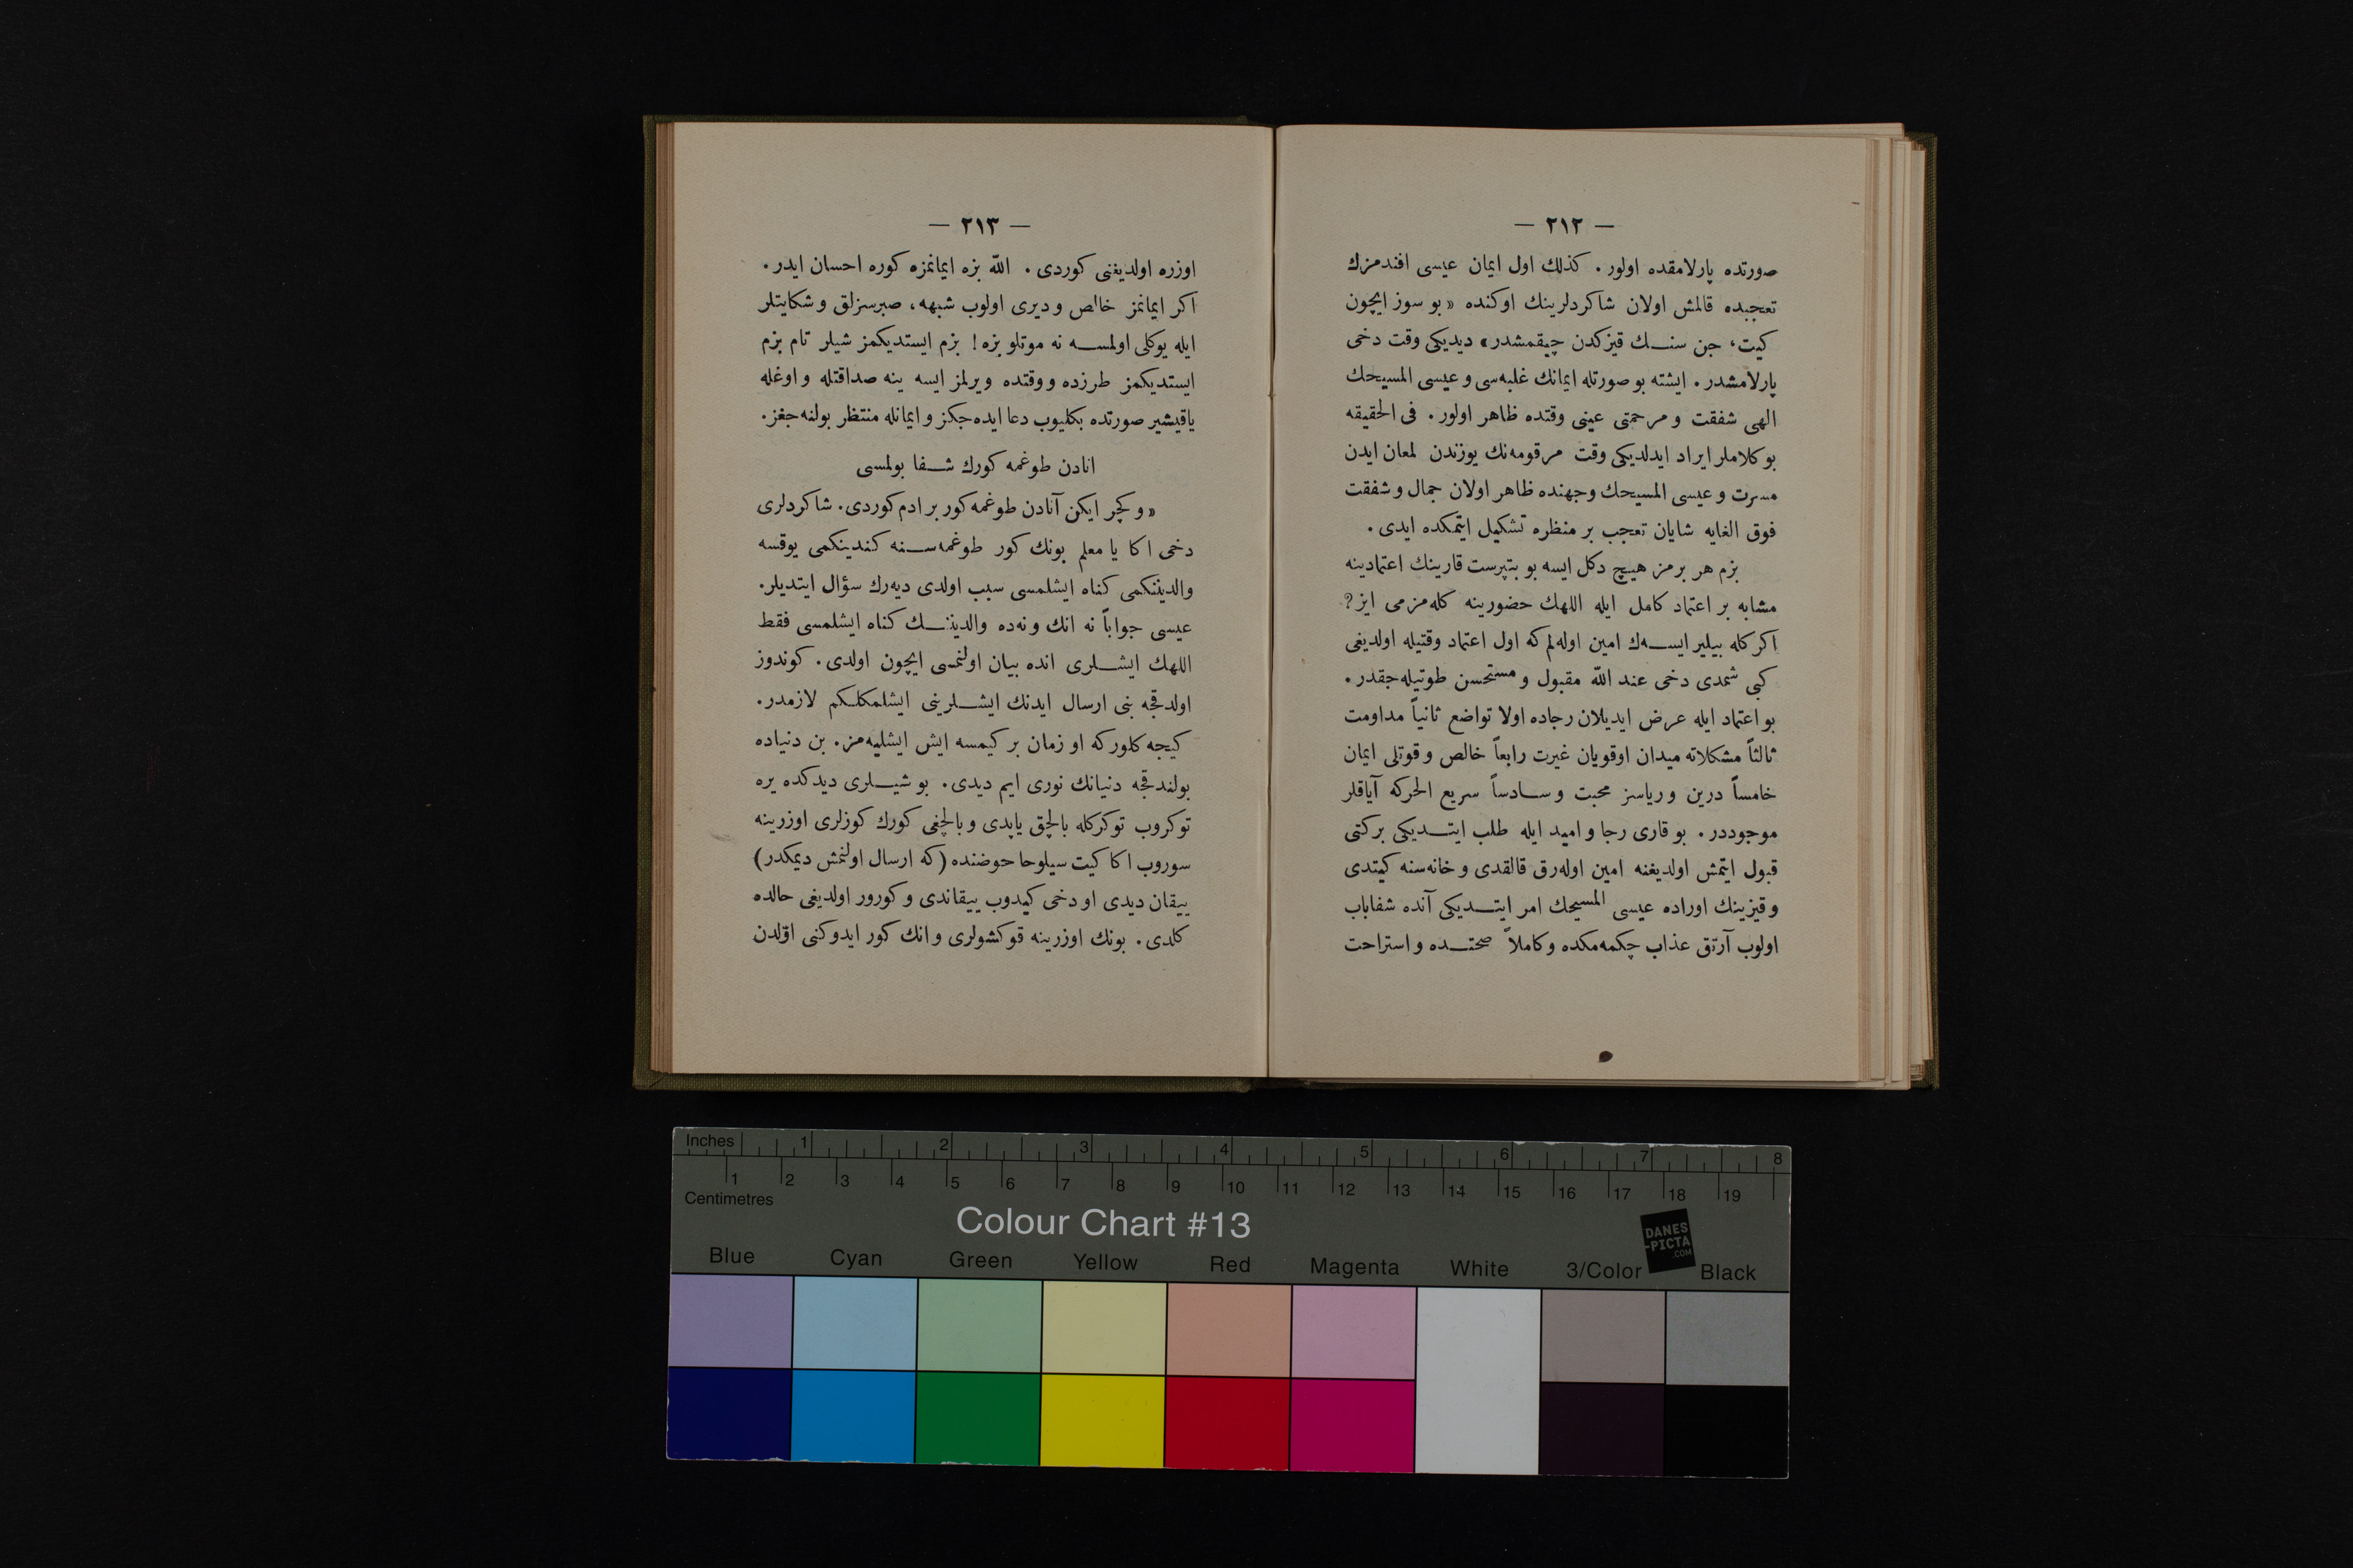 — ٢١٢ —
صورتده پارلامقده اولور. كذلك اول ایمان عیسی افندمزك
تعجبده قالمش اولان شاكردلرینك اوكنده «بو سوز ایچون
كیت، جن سنك قیزكدن چیقمشدر» دیدیكی وقت دخی
پارلامشدر. ایشته بو صورتله ایمانك غلبه‌سی و عیسی المسیحك
الهی شفقت و مرحمتی عینی وقتده ظاهر اولور. فی الحقیقه
بو كلاملر ایراد ایدلدیكی وقت مرقومه‌نك یوزندن لمعان ایدن
مسرت و عیسی المسیحك وجهنده ظاهر اولان جمال و شفقت
فوق الغایه شایان تعجب بر منظره تشكیل ایتمكده ایدی.
بزم هر برمز هیچ دكل ایسه بو بتپرست قارینك اعتمادینه
مشابه بر اعتماد كامل ایله اللهك حضورینه كله‌مزمی ایز؟
اكر كله بیلیر ایسه‌ك امین اوله‌لم كه اول اعتماد وقتیله اولدیغی
كبی شمدی دخی عند الله مقبول و مستحسن طوتیله‌جقدر.
بو اعتماد ایله عرض ایدیلان رجاده اولا تواضع ثانیاً مداومت
ثالثاً مشكلاته میدان اوقویان غیرت رابعاً خالص و قوتلی ایمان
خامساً درین و ریاسز محبت و سادساً سریع الحركه آیاقلر
موجوددر. بو قاری رجا و امید ایله طلب ایتدیكی بركتی
قبول ایتمش اولدیغنه امین اوله‌رق قالقدی و خانه‌سنه كیتدی
و قیزینك اوراده عیسی المسیحك امر ایتدیكی آنده شفایاب
اولوب آرتق عذاب چكمه‌مكده و كاملاً صحتده و استراحت
— ٢١٣ —
اوزره اولدیغنی كوردی. الله بزه ایمانمزه كوره احسان ایدر.
اكر ایمانمز خالص و دیری اولوب شبهه، صبرسزلق و شكایتلر
ایله یوكلی اولمسه نه موتلو بزه! بزم ایستدیكمز شیلر تام بزم
ایستدیكمز طرزده و وقتده ویرلمز ایسه ینه صداقتله و اوغله
یاقیشیر صورتده بكلیوب دعا ایده‌جكز و ایمانله منتظر بولنه‌جغز.
انادن طوغمه كورك شفا بولمسی
«و كچر ایكن آنادن طوغمه كور بر ادم كوردی. شاكردلری
دخی اكا یا معلم بونك كور طوغمه‌سنه كندینكمی یوقسه
والدیننكمی كناه ایشلمسی سبب اولدی دیه‌رك سؤال ایتدیلر.
عیسی جواباً نه انك و نه‌ده والدیننك كناه ایشلمسی فقط
اللهك ایشلری انده بیان اولنمسی ایچون اولدی. كوندوز
اولدقجه بنی ارسال ایدنك ایشلرینی ایشلمكلكم لازمدر.
كیجه كلور كه او زمان بر كیمسه ایش ایشلیه‌مز. بن دنیاده
بولندقجه دنیانك نوری ایم دیدی. بو شیلری دیدكده یره
توكروب توكركله بالچق یاپدی و بالچغی كورك كوزلری اوزرینه
سوروب اكا كیت سیلوحا حوضنده (كه ارسال اولنمش دیمكدر)
ییقان دیدی او دخی كیدوب ییقاندی و كورور اولدیغی حالده
كلدی. بونك اوزرینه قوكشولری و انك كور ایدوكنی اوّلدن
Inches 1 2 3 4 5 6 7 8
1 2 3 4 5 6 7 8 9 10 11 12 13 14 15 16 17 18 19
Centimetres
Colour Chart #13
DANES
-PICTA
.COM
Blue Cyan Green Yellow Red Magenta White 3/Color Black